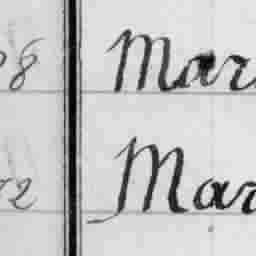 8 Mar
2 Mar